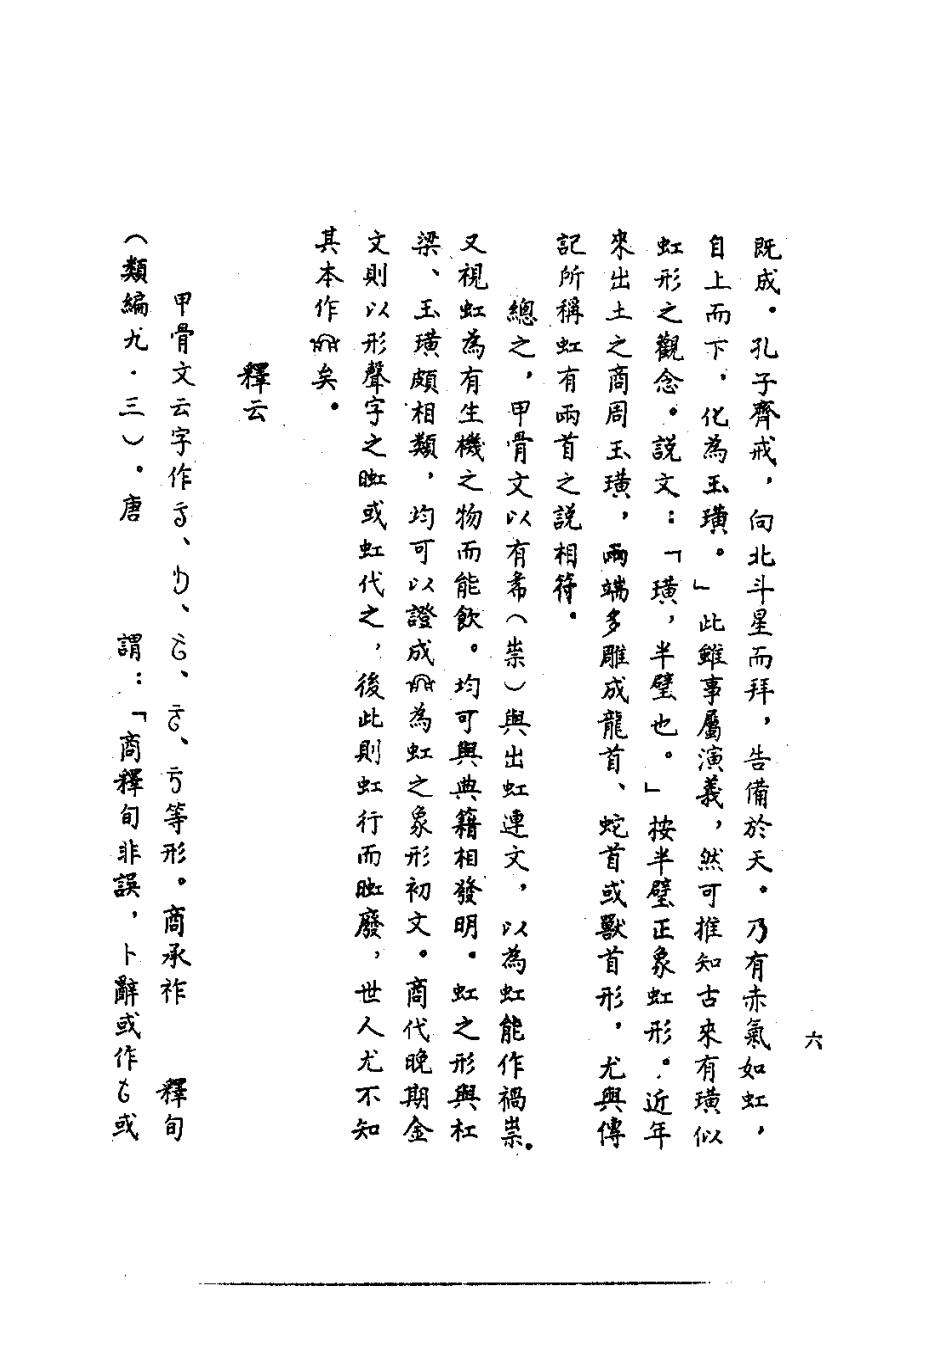 六
既成。孔子齊戒，向北斗星而拜，告備於天。乃有赤氣如虹，
自上而下，化為玉璜。」此雖事屬演義，然可推知古來有璜似
虹形之觀念。說文：「璜，半璧也。」按半璧正象虹形。近年
來出土之商周玉璜，兩端多雕成龍首、蛇首或獸首形，尤與傳
記所稱虹有兩首之說相符。
總之，甲骨文以有希（祟）與出虹連文，以為虹能作禍祟。
又視虹為有生機之物而能飲。均可與典籍相發明。虹之形與杠
梁、玉璜頗相類，均可以證成為虹之象形初文。商代晚期金
文則以形聲字之或虹代之，後此則虹行而廢，世人尤不知
其本作矣。
釋云
甲骨文云字作、、、、等形。商承祚 釋旬
（類編九．三）。唐 謂：「商釋旬非誤，卜辭或作或